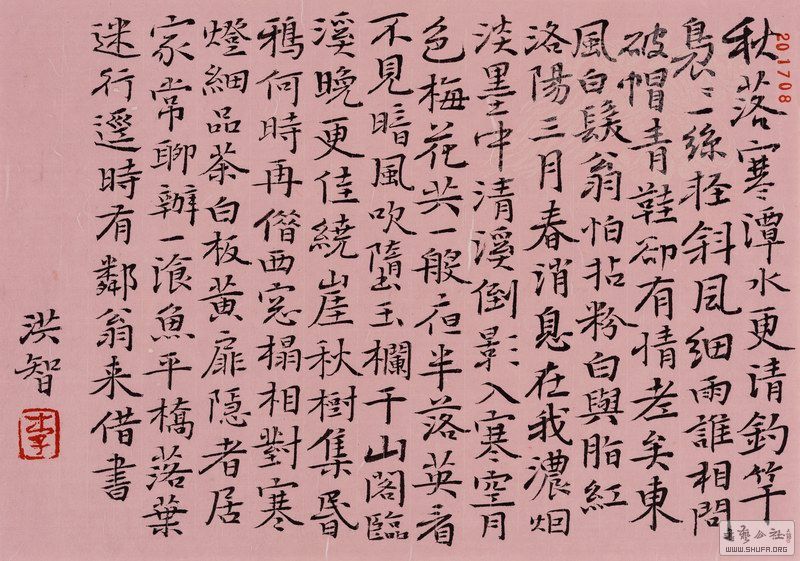 秋落寒潭水更清釣竿
裊〻一絲輕斜風細雨誰相問
破帽青鞋卻有情老矣東
風白鬂翁怕拈粉白與脂紅
洛陽三月春消息在我濃烟
淡墨中清溪倒影入寒空月
色梅花共一般夜半落英看
不見暗風吹墮玉欄干山閣臨
溪晚更佳繞崖秋樹集昏
鴉何時再借西窓榻相對寒
燈細品茶白板黃扉隱者居
家常聊辦一飡魚平橋落葉
迷行逕時有鄰翁来借書
洪智
李
201708
WWW.SHUFA.ORG